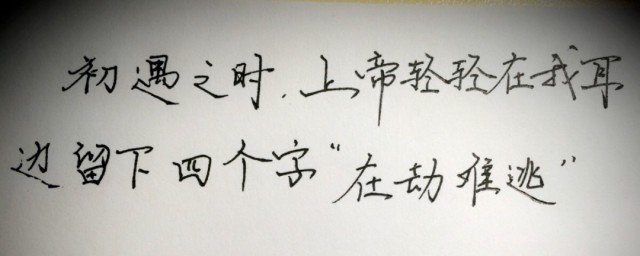 初遇之时.上帝轻轻在我耳
边留下四个字“在劫难逃”